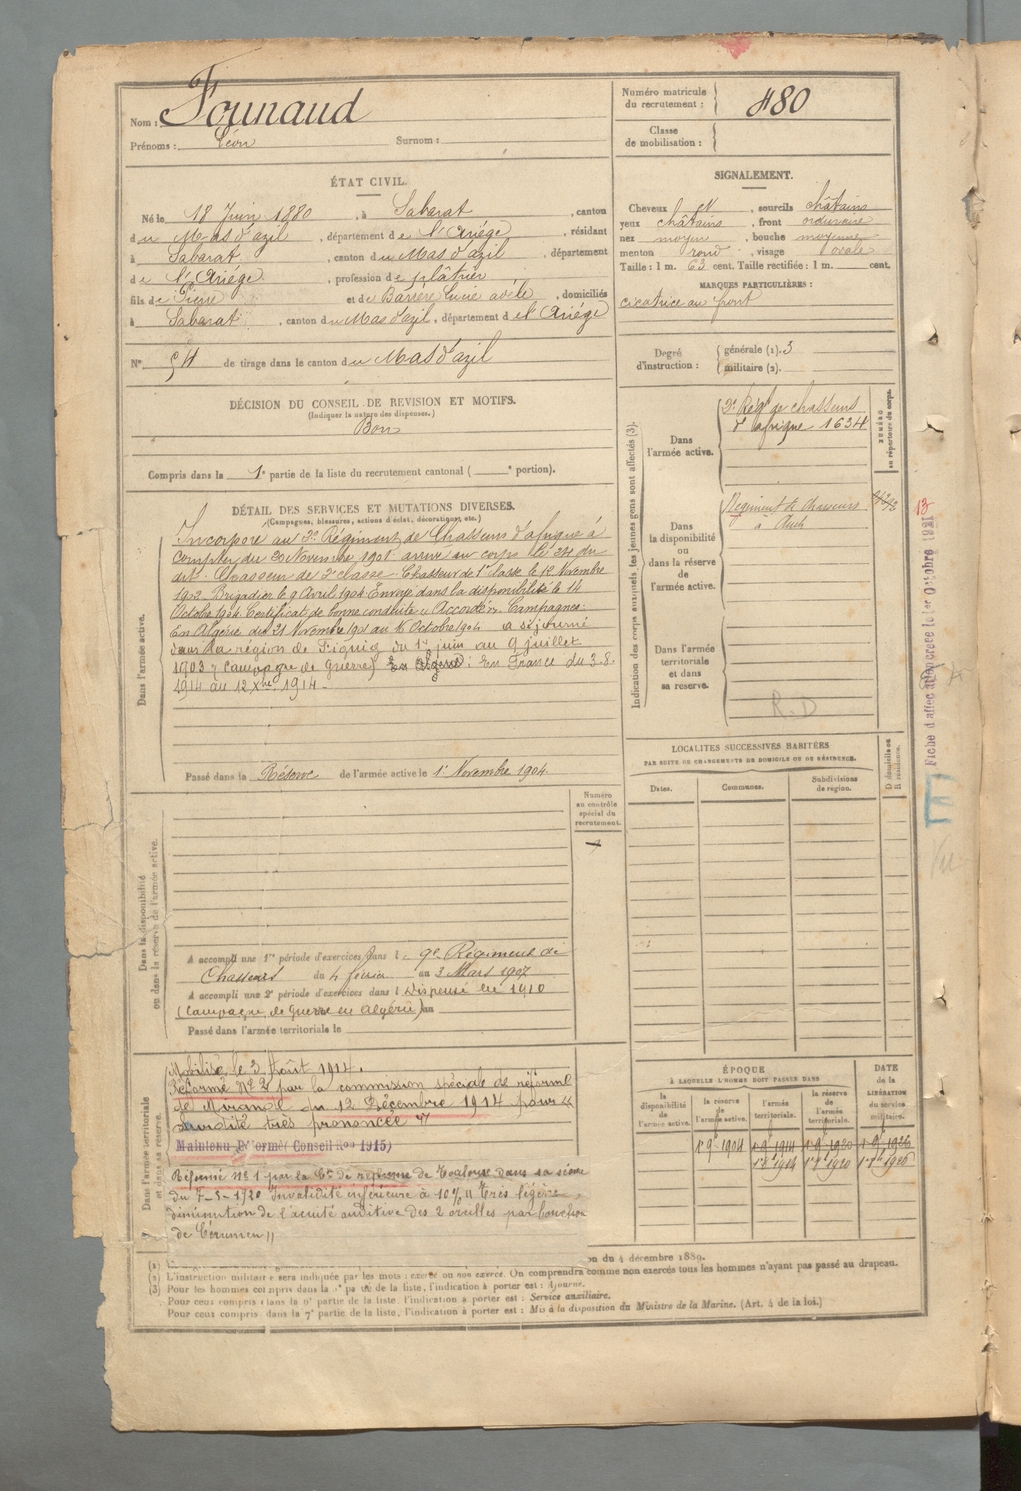 Nom : Founaud
Prénoms : Léon Surnom :
Numéro matricule du recrutement : 480
Classe de mobilisation :
ÉTAT CIVIL.
Né le 18 Juin 1880, à Sabarat, canton
du Mas d'azil, département de l'Ariége, résidant
à Sabarat, canton du Mas d'azil, département
de l'Ariége, profession de plâtrier
fils de Pierre et de Barrère Lucie adèle, domiciliés
à Sabarat, canton du Mas d'azil, département de l'Ariége
N° 54 de tirage dans le canton du Mas d'azil
DÉCISION DU CONSEIL DE REVISION ET MOTIFS.
(Indiquer la nature des dispenses.)
Bon
Compris dans la 1e partie de la liste du recrutement cantonal ( e portion).
SIGNALEMENT.
Cheveux , sourcils châtains
yeux châtains, front ordinaire
nez moyen, bouche moyenne
menton rond, visage ovale
Taille : 1 m. 63 cent. Taille rectifiée : 1 m. cent.
MARQUES PARTICULIÈRES :
cicatrice au front
Degré d'instruction : générale (1). 3
militaire (2).
Indication des corps auxquels les jeunes gens sont affectés (3).
NUMÉRO au répertoire du corps.
Dans l'armée active.
3e Régt de chasseurs
d'afrique 1634
Dans la disponibilité ou dans la réserve de l'armée active.
Régiment de chasseurs
à Auch
Dans l'armée territoriale et dans sa réserve.
R.D
DÉTAIL DES SERVICES ET MUTATIONS DIVERSES.
(Campagnes, blessures, actions d'éclat, décorations, etc.)
Dans l'armée active.
Incorporé au 3e Régiment de Chasseurs d'afrique à
compter du 20 Novembre 1901 arrivé au corps le 24 du
dit. Chasseur de 2e classe. Chasseur de 1re classe le 12 Novembre
1902. Brigadier le 9 Avril 1904 Envoyé dans la disponibilité le 14
Octobre 1904 Certificat de bonne conduite "Accordé". Campagnes:
En Algérie du 21 Novembre 1901 au 16 Octobre 1904 a séjourné
dans la région de Figuig du 1er juin au 9 juillet
1903 (Campagne de Guerre) En Algérie: En France du 3.8.
1914 au 12 Xbre 1914.
Passé dans la Réserve de l'armée active le 1er Novembre 1904.
Dans la disponibilité ou dans la réserve de l'armée active.
Numéro au contrôle spécial du recrutement.
A accompli une 1re période d'exercices dans l 9e Régiment de
Chasseurs du 4 février au 3 Mars 1907
A accompli une 2e période d'exercices dans l Dispensé en 1910
(Campagne de Guerre en Algérie) au
Passé dans l'armée territoriale le
LOCALITÉS SUCCESSIVES HABITÉES
PAR SUITE DE CHANGEMENTS DE DOMICILE OU DE RÉSIDENCE.
Dates. Communes. Subdivisions de région. D domicile ou R résidence.
Dans l'armée territoriale et dans sa réserve.
Mobilisé le 3 Août 1914.
Réformé N° 2 par la commission spéciale de réforme
de Mirande du 12 Décembre 1914 pour "
surdité très prononcée "
Maintenu Réformé (Conseil Ron 1915)
Réformé N° 1 par la Con de réforme de Toulouse dans sa séance
du 7-5-1920 Invalidité inférieure à 10% " Très légère
diminution de l'acuité auditive des 2 oreilles par bouchon
de Cérumen "
ÉPOQUE
À LAQUELLE L'HOMME DOIT PASSER DANS
la disponibilité de l'armée active. la réserve de l'armée active. l'armée territoriale. la réserve de l'armée territoriale.
DATE de la LIBÉRATION du service militaire.
1er 9bre 1904 1er 9bre 1914 1er 9bre 1920 1er 9bre 1926
Fiche d'affectation créée le 1er Octobre 1921
13
Vu
(1) on du 4 décembre 1889.
(2) L'instruction militaire sera indiquée par les mots : exercé ou non exercé. On comprendra comme non exercés tous les hommes n'ayant pas passé au drapeau.
(3) Pour les hommes compris dans la 5e partie de la liste, l'indication à porter est : Ajourné.
Pour ceux compris dans la 6e partie de la liste, l'indication à porter est : Service auxiliaire.
Pour ceux compris dans la 7e partie de la liste, l'indication à porter est : Mis à la disposition du Ministre de la Marine. (Art. 4 de la loi.)